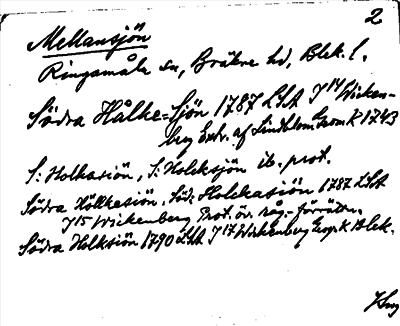 2
Mellansjön
Ringamåla sn, Bräkne hd, Blek. l.
Södra Hålke=Sjön 1787 LSA J 14 Wicken-
berg Extr. af Lindblom Geom. K 1743
S: Holkasiön, S: Holcksjön ib. prot.
Södra Hållkesiön, Söd: Holckasiön 1787 LSA
J 15 Wickenberg Prot. öv. råg.-förrättn.
Södra Holksiön 1790 LSA J 17 Wickenberg Geogr. K Blek.